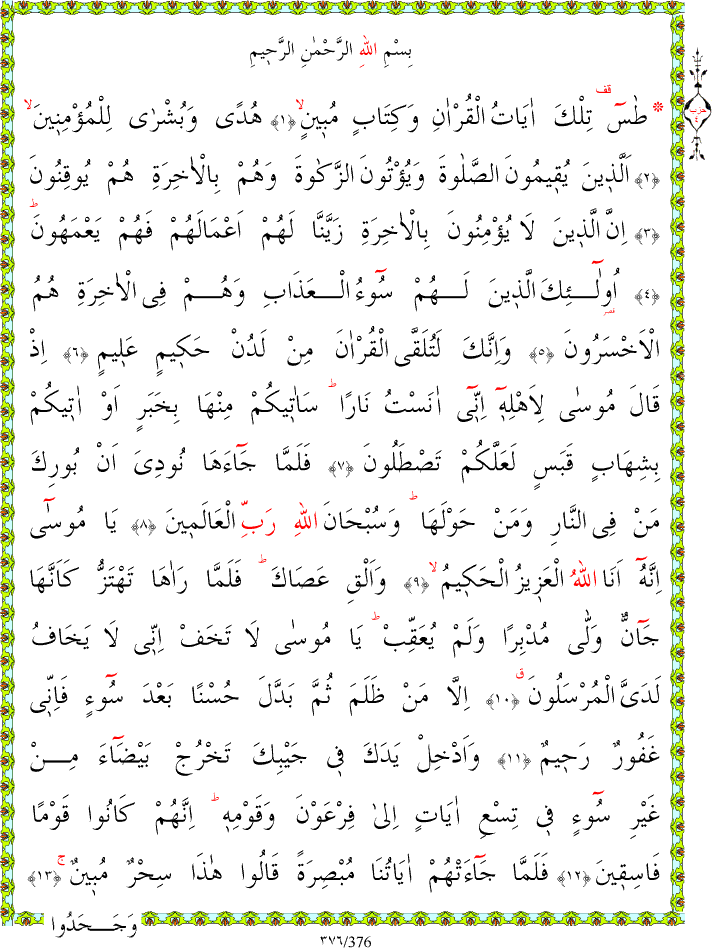 بِسْمِ اللهِ الرَّحْمٰنِ الرَّحٖيمِ
* طٰسٓ قف تِلْكَ اٰيَاتُ الْقُرْاٰنِ وَكِتَابٍ مُبٖينٍۙ ﴿١﴾ هُدًى وَبُشْرٰى لِلْمُؤْمِنٖينَۙ
حزب ٤
﴿٢﴾ اَلَّذٖينَ يُقٖيمُونَ الصَّلٰوةَ وَيُؤْتُونَ الزَّكٰوةَ وَهُمْ بِالْاٰخِرَةِ هُمْ يُوقِنُونَ
﴿٣﴾ اِنَّ الَّذٖينَ لَا يُؤْمِنُونَ بِالْاٰخِرَةِ زَيَّنَّا لَهُمْ اَعْمَالَهُمْ فَهُمْ يَعْمَهُونَؕ
﴿٤﴾ اُولٰٓئِكَ الَّذٖينَ لَـهُمْ سُٓوءُ الْـعَذَابِ وَهُـمْ فِى الْاٰخِرَةِ هُمُ
الْاَخْسَرُونَ ﴿٥﴾ وَاِنَّكَ لَتُلَقَّى الْقُرْاٰنَ مِنْ لَدُنْ حَكٖيمٍ عَلٖيمٍ ﴿٦﴾ اِذْ
قَالَ مُوسٰى لِاَهْلِهٖٓ اِنّٖٓى اٰنَسْتُ نَارًاؕ سَاٰتٖيكُمْ مِنْهَا بِخَبَرٍ اَوْ اٰتٖيكُمْ
بِشِهَابٍ قَبَسٍ لَعَلَّكُمْ تَصْطَلُونَ ﴿٧﴾ فَلَمَّا جَٓاءَهَا نُودِىَ اَنْ بُورِكَ
مَنْ فِى النَّارِ وَمَنْ حَوْلَهَاؕ وَسُبْحَانَ اللهِ رَبِّ الْعَالَمٖينَ ﴿٨﴾ يَا مُوسٰٓى
اِنَّهُٓ اَنَا اللهُ الْعَزٖيزُ الْحَكٖيمُۙ ﴿٩﴾ وَاَلْقِ عَصَاكَؕ فَلَمَّا رَاٰهَا تَهْتَزُّ كَاَنَّهَا
جَٓانٌّ وَلّٰى مُدْبِرًا وَلَمْ يُعَقِّبْؕ يَا مُوسٰى لَا تَخَفْ اِنّٖى لَا يَخَافُ
لَدَىَّ الْمُرْسَلُونَ ق ﴿١٠﴾ اِلَّا مَنْ ظَلَمَ ثُمَّ بَدَّلَ حُسْنًا بَعْدَ سُٓوءٍ فَاِنّٖى
غَفُورٌ رَحٖيمٌ ﴿١١﴾ وَاَدْخِلْ يَدَكَ فٖى جَيْبِكَ تَخْرُجْ بَيْضَٓاءَ مِـنْ
غَيْرِ سُٓوءٍ فٖى تِسْعِ اٰيَاتٍ اِلٰى فِرْعَوْنَ وَقَوْمِهٖؕ اِنَّهُمْ كَانُوا قَوْمًا
فَاسِقٖينَ ﴿١٢﴾ فَلَمَّا جَٓاءَتْهُمْ اٰيَاتُنَا مُبْصِرَةً قَالُوا هٰذَا سِحْرٌ مُبٖينٌۚ ﴿١٣﴾
وَجَـحَدُوا
٣٧٦/376